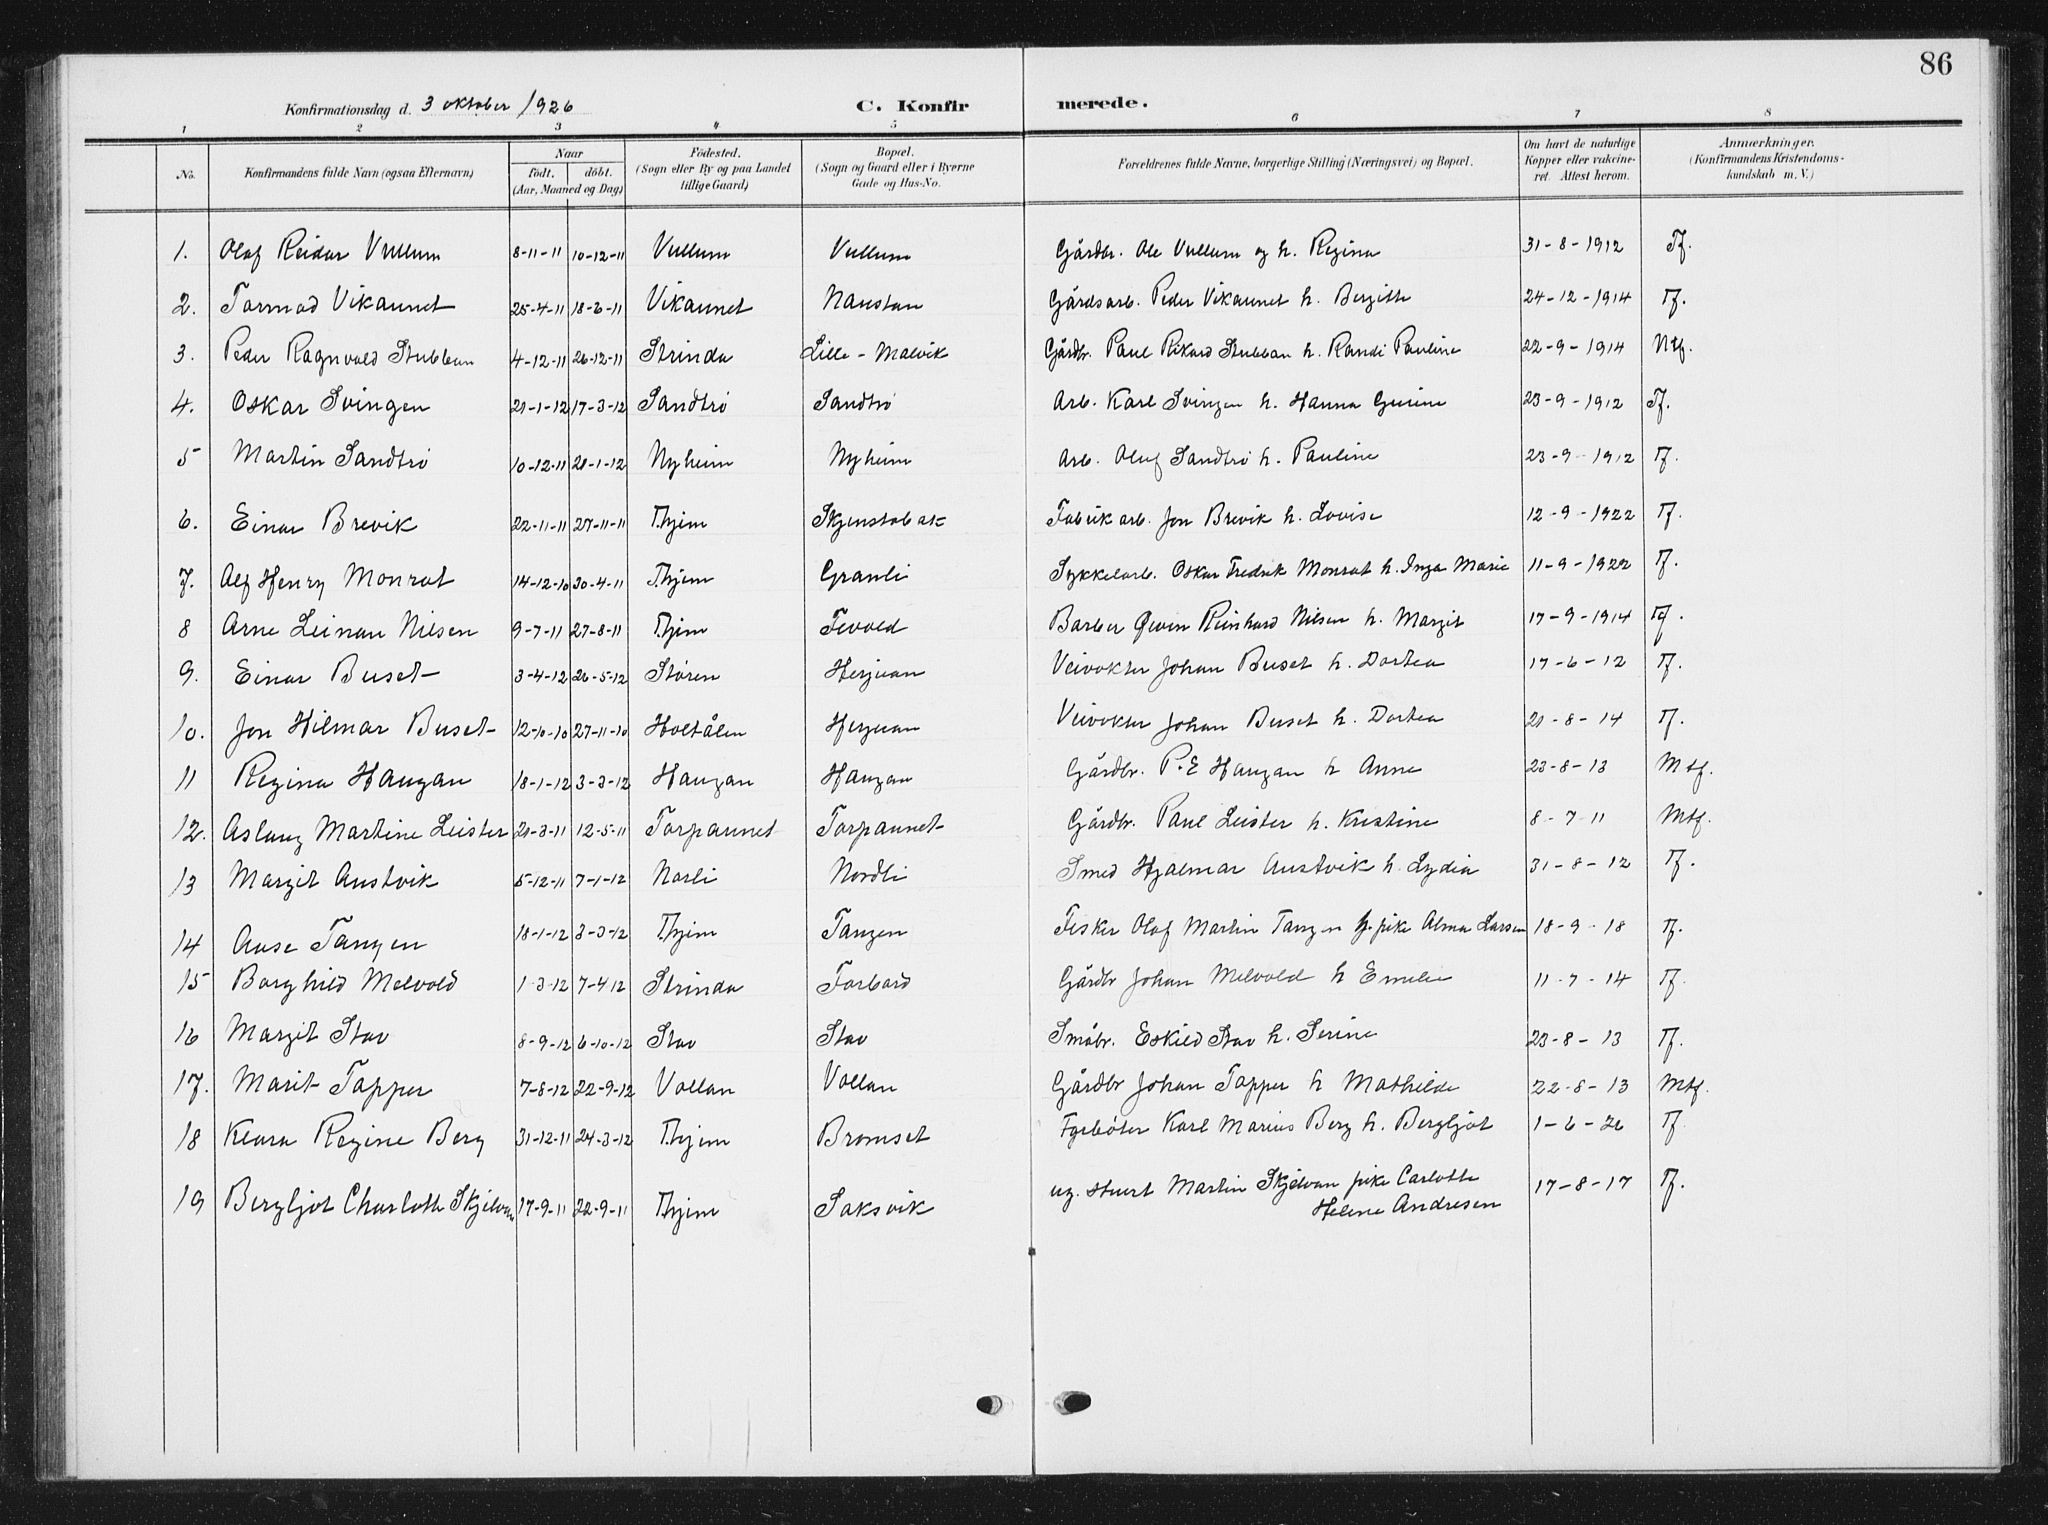 86
Konfirmationsdag d. 3 oktober 1926 C. Konfir merede.
1 2 3 4 5 6 7 8
No. Konfirmandens fulde Navn (ogsaa Efternavn) Naar födt. döbt. (Aar, Maaned og Dag) Födested. (Sogn eller By og paa Landet tillige Gaard) Bopæl. (Sogn og Gaard eller i Byerne Gade og Hus-No. Forældrenes fulde Navne, borgerlige Stilling (Næringsvei) og Bopæl. Om havt de naturlige Kopper eller vakcineret. Attest herom. Anmærkninger. (Konfirmandens Kristendomskundskab m. V.)
1. Olaf Reidar Vullum 8-11-11 10-12-11 Vullum Vullum Gårdbr. Ole Vullum og h. Regina 31-8-1912 Tf.
2. Tormod Vikaunet 25-4-11 18-6-11 Vikaunet Naustan Gårdsarb. Peder Vikaunet h. Bergitte 24-12-1914 Tf.
3. Peder Ragnvald Stubban 4-12-11 26-12-11 Strinda Lille-Malvik Gårdbr. Paul Rikard Stubban h. Randi Pauline 22-9-1914 Ntf.
4. Oskar Svingen 21-1-12 17-3-12 Sandtrø Sandtrø Arb. Karl Svingen h. Hanna Gurine 23-9-1912 Tf.
5 Martin Sandtrø 10-12-11 21-1-12 Nyheim Nyheim Arb. Oluf Sandtrø h. Pauline 23-9-1912 Tf.
6. Einar Brevik 22-11-11 27-11-11 Thjem Skjenstabak Fabrikarb. Jon Brevik h. Lovise 12-9-1922 Tf.
7. Alf Henry Monrat 14-12-10 30-4-11 Thjem Granli Sykkelarb. Oskar Fredrik Monrat h. Inga Marie 11-9-1922 Tf.
8 Arne Leinan Nilsen 9-7-11 27-8-11 Thjem Fevold Barber Øwen Reinhard Nilsen h. Margit 17-9-1914 Tf.
9. Einar Buset 3-4-12 26-5-12 Støren Herjuan Veivokter Johan Buset h. Dortea 17-6-12 Tf.
10. Jon Hilmar Buset 12-10-10 27-11-10 Holtålen Herjuan Veivokter Johan Buset h. Dortea 21-8-14 Tf.
11 Regina Haugan 18-1-12 3-3-12 Haugan Haugan Gårdbr. P.E Haugan h Anna 23-8-13 Mtf.
12. Aslaug Martine Leister 21-3-11 12-5-11 Torpaunet Torpaunet Gårdbr. Paul Leister h. Kristine 8-7-11 Mtf.
13 Margit Austvik 5-12-11 7-1-12 Norli Nordli Smed Hjalmar Austvik h. Lydia 31-8-12 Tf.
14 Aase Tangen 18-1-12 3-3-12 Thjem Tangen Fisker Olaf Martin Tangen pike Alma Larsen 18-9-18 Tf.
15 Borghild Melvold 1-3-12 7-4-12 Strinda Forbord Gårdbr Johan Melvold h Emelie 11-7-14 Tf.
16 Margit Stav 8-9-12 6-10-12 Stav Stav Småbr. Eskild Stav h. Serine 23-8-13 Tf.
17. Marit Tapper 7-8-12 22-9-12 Vollan Vollan Gårdbr Johan Tapper h Mathilde 22-8-13 Mtf.
18 Klara Regine Berg 31-12-11 24-3-12 Thjem Bromset Fyrbøter Karl Marius Berg h. Bergljot 1-6-26 Tf.
19 Bergljot Charlotte Skjelvan 17-9-11 22-9-11 Thjem Saksvik ug. Stuert Martin Skjelvan pike Carlotte Helene Andresen 17-8-17 Tf.